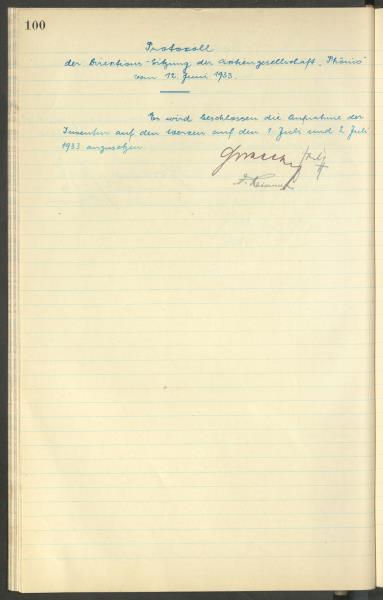 100
Protocoll
der Direktions-Sitzung der Actiengesellschaft „Phönix"
vom 12. Juni 1933.
Es wird beschlossen die Aufnahme der
Inventur auf den Werken auf den 1. Juli und 2. Juli
1933 anzusetzen.